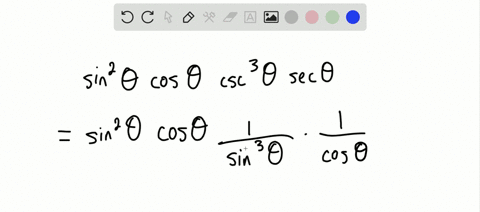 sin²θ cosθ csc³θ secθ
= sin²θ cosθ 1/sin³θ · 1/cosθ